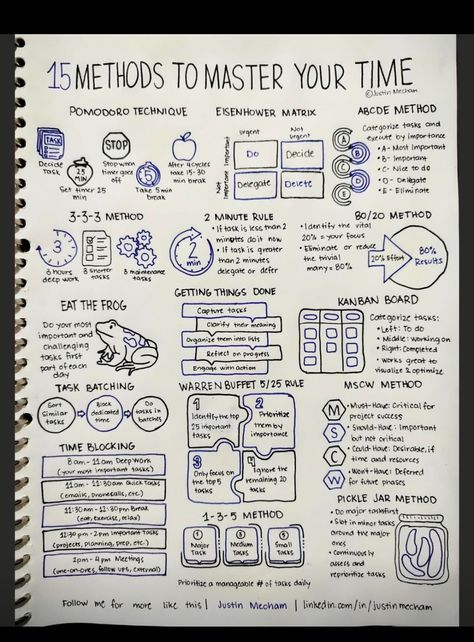 15 METHODS TO MASTER YOUR TIME
©Justin Mecham
POMODORO TECHNIQUE
TASK
Decide
Task
25
MIN
Set timer 25
min
STOP
Stop when
timer goes
off
5
Take 5 min
break
After 4 cycles
take 15-30
min break
EISENHOWER MATRIX
Urgent
Not
Urgent
Important
Not Important
Do
Decide
Delegate
Delete
ABCDE METHOD
Categorize tasks and
execute by importance
A
B
C
D
E
• A - Most important
• B - Important
• C - Nice to do
• D - Delegate
• E - Eliminate
3-3-3 METHOD
3
3 hours
deep work
3 shorter
tasks
3 maintenance
tasks
2 MINUTE RULE
2
min
• If task is less than 2
minutes do it now
• If task is greater
than 2 minutes
delegate or defer
80/20 METHOD
• Identify the vital
20% = your focus
• Eliminate or reduce
the trivial
many = 80%
20% Effort
80%
Results
EAT THE FROG
Do your most
important and
challenging
tasks first
part of each
day
GETTING THINGS DONE
Capture tasks
Clarify their meaning
Organize them into lists
Reflect on progress
Engage with action
KANBAN BOARD
Categorize tasks:
• Left: To do
• Middle: Working on
• Right: Completed
• Works great to
visualize & optimize
TASK BATCHING
Sort
similar
tasks
Block
dedicated
time
Do
tasks in
batches
WARREN BUFFET 5/25 RULE
1
Identify the top
25 important
tasks
2
Prioritize
them by
importance
3
Only focus on
the top 5
tasks
4
Ignore the
remaining 20
tasks
MSCW METHOD
M
• Must-Have: Critical for
project success
S
• Should-Have: Important
but not critical
C
• Could-Have: Desirable, if
time and resources
W
• Won't-Have: Deferred
for future phases
TIME BLOCKING
8am - 11am Deep Work
(your most important tasks)
11am - 11:30am Quick Tasks
(emails, phone calls, etc.)
11:30am - 12:30 pm Break
(eat, exercise, relax)
12:30 pm - 2pm Important Tasks
(projects, planning, prep, etc.)
2pm - 4pm Meetings
(one-on-ones, follow ups, external)
1-3-5 METHOD
1
Major
Task
3
Medium
Tasks
5
Small
Tasks
Prioritize a manageable # of tasks daily
PICKLE JAR METHOD
• Do major tasks first
• Slot in minor tasks
around the major
ones
• Continuously
assess and
reprioritize tasks
Follow me for more like this | Justin Mecham | linkedin.com/in/justinmecham